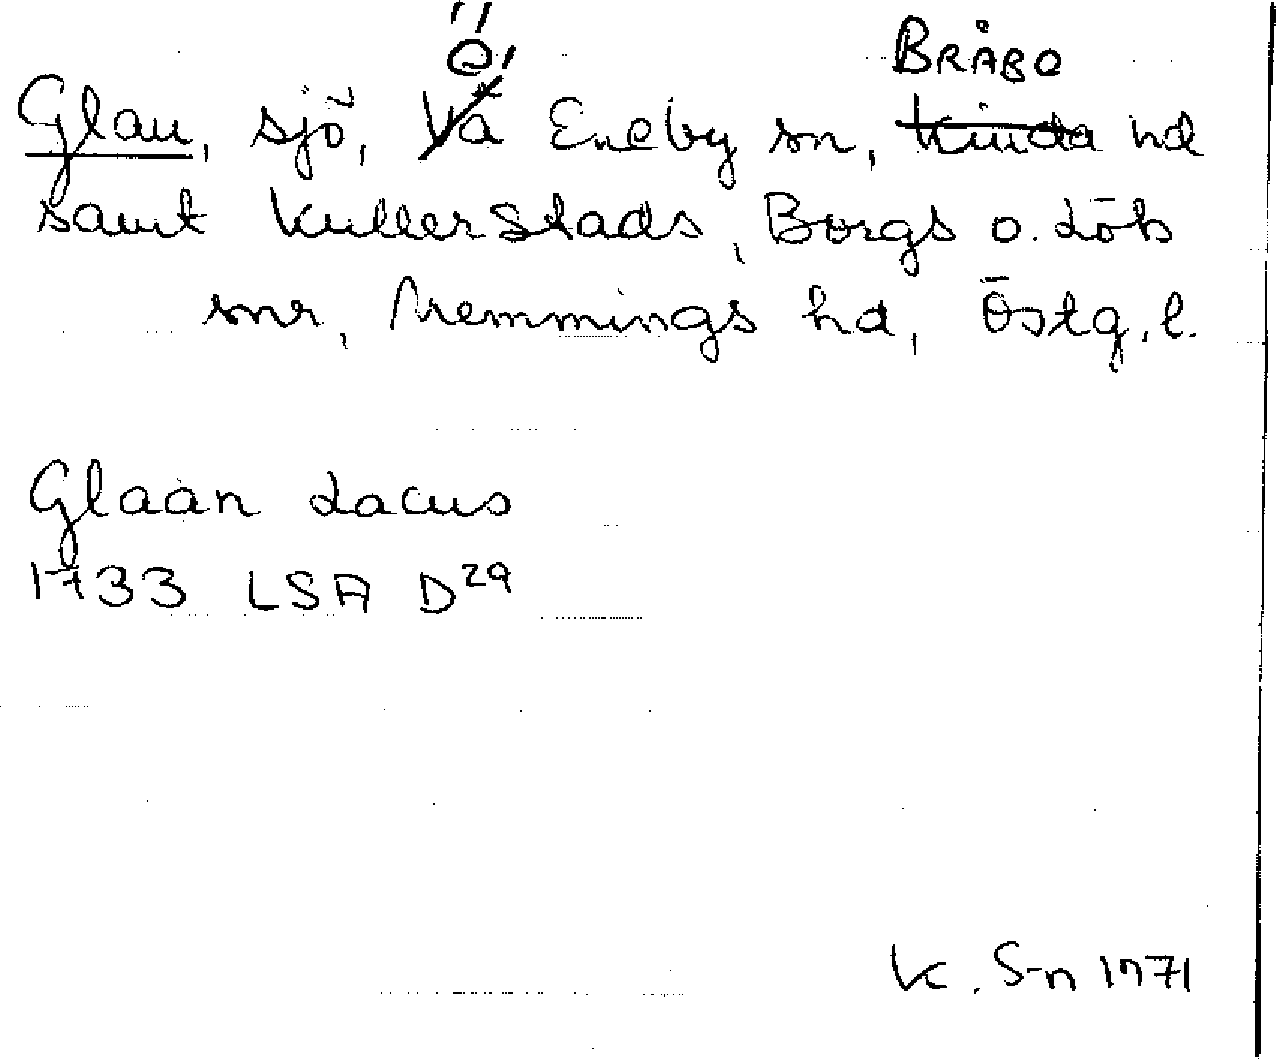 Ö, BRÅBO
Glan, sjö, Vä Eneby sn, Kinda hd
samt Kullerstads, Borgs o. Löts
snr, Memmings hd, Östg. l.
Glaån Lacus
1733 LSA D29
K. S-n 1971